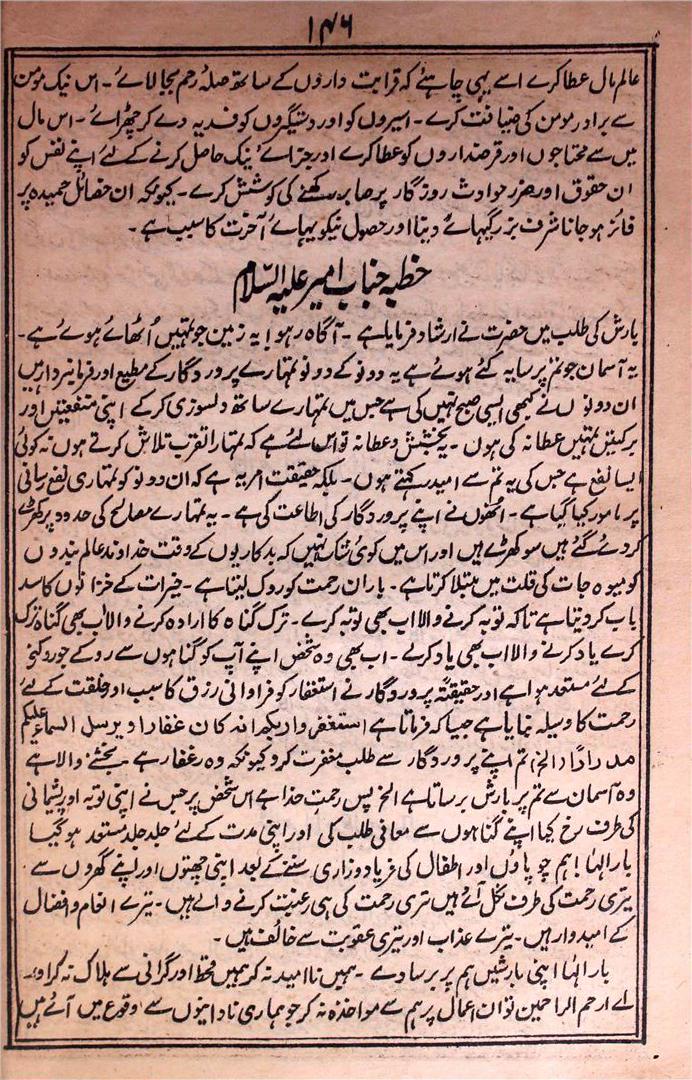 ۱۴۶
عالم مال عطا کرے اسے یہی چاہئے کہ قرابت داروں کے ساتھ صلہ رحم بجا لائے ۔ اس نیک مومن
سے برادر مومن کی ضیافت کرے ۔ اسیروں کو اور دستگیروں کو فدیہ دے کر چھڑائے ۔ اس مال
میں سے محتاجوں اور قرضداروں کو عطا کرے اور جزائے نیک حاصل کرنے کے لئے اپنے نفس کو
ان حقوق اور ضرر حوادث روزگار پر صابر رکھنے کی کوشش کرے ۔ کیونکہ ان خصائل حمیدہ پر
فائز ہو جانا شرف بزرگیہائے دنیا اور حصول نیکوییہائے آخرت کا سبب ہے ۔
خطبہ جناب امیر علیہ السّلام
بارش کی طلب میں حضرت نے ارشاد فرمایا ہے ۔ آگاہ رہو! یہ زمین جو تمہیں اُٹھائے ہوئے ہے ۔
یہ آسمان جو تم پر سایہ کئے ہوئے ہے یہ دونو کے دونو تمہارے پروردگار کے مطیع اور فرمانبردار ہیں
ان دونوں نے کبھی ایسی صبح نہیں کی ہے جس میں تمہارے ساتھ دلسوزی کرکے اپنی منفعتیں اور
برکتیں تمہیں عطا نہ کی ہوں ۔ یہ بخشش و عطا نہ تو اس لئے ہے کہ تمہارا تقرب تلاش کرتے ہوں نہ کوئی
ایسا نفع ہے جس کی یہ تم سے امید رکھتے ہوں ۔ بلکہ حقیقت امر یہ ہے کہ ان دونو کو تمہاری نفع رسانی
پر مامور کیا گیا ہے ۔ انھوں نے اپنے پروردگار کی اطاعت کی ہے ۔ یہ تمہارے مصالح کی حدود پر کھڑے
کر دئے گئے ہیں سو کھڑے ہیں اور اس میں کوئی شک نہیں کہ بدکاریوں کے وقت خداوند عالم بندوں
کو میوہ جات کی قلت میں مبتلا کرتا ہے ۔ باران رحمت کو روک لیتا ہے ۔ خیرات کے خزانوں کا سد
باب کر دیتا ہے تاکہ توبہ کرنے والا اب بھی توبہ کرے ۔ ترک گناہ کا ارادہ کرنے والا اب بھی گناہ ترک
کرے یاد کرنے والا اب بھی یاد کرلے ۔ اب بھی وہ شخص اپنے آپ کو گناہوں سے روکے جو روکنے
کے لئے مستعد ہوا ہے اور حقیقتہً پروردگار نے استغفار کو فراوانی رزق کا سبب اور خلقت کے لئے
رحمت کا وسیلہ بنایا ہے جیسا کہ فرماتا ہے استغفروا ربکم انه کان غفارا ویرسل السماء علیکم
مدرارًا (الخ) تم اپنے پروردگار سے طلب مغفرت کرو کیونکہ وہ غفار ہے ۔ بخشنے والا ہے
وہ آسمان سے تم پر بارش برساتا ہے الخ پس رحمت خدا ہے اس شخص پر جس نے اپنی توبہ اور پشیمانی
کی طرف رخ کیا اپنے گناہوں سے معافی طلب کی اور اپنی مدت کے لئے جلد جلد مستعد ہو گیا
بارالہا! ہم چوپاؤں اور اطفال کی فریاد و زاری سننے کے بعد اپنی چھتوں اور اپنے گھروں سے
تیری رحمت کی طرف نکل آئے ہیں تری رحمت کی ہی رغبت کرنے والے ہیں ۔ تیرے انعام و افضال
کے امیدوار ہیں ۔ تیرے عذاب اور تیری عقوبت سے خائف ہیں ۔
بارالہا اپنی بارشیں ہم پر برسا دے ۔ ہمیں نا امید نہ کر ہمیں قحط اور گرانی سے ہلاک نہ کراو ۔
اے ارحم الراحمین تو ان اعمال پر ہم سے مواخذہ نہ کر جو ہماری نادانیوں سے وقوع میں آئے ہیں